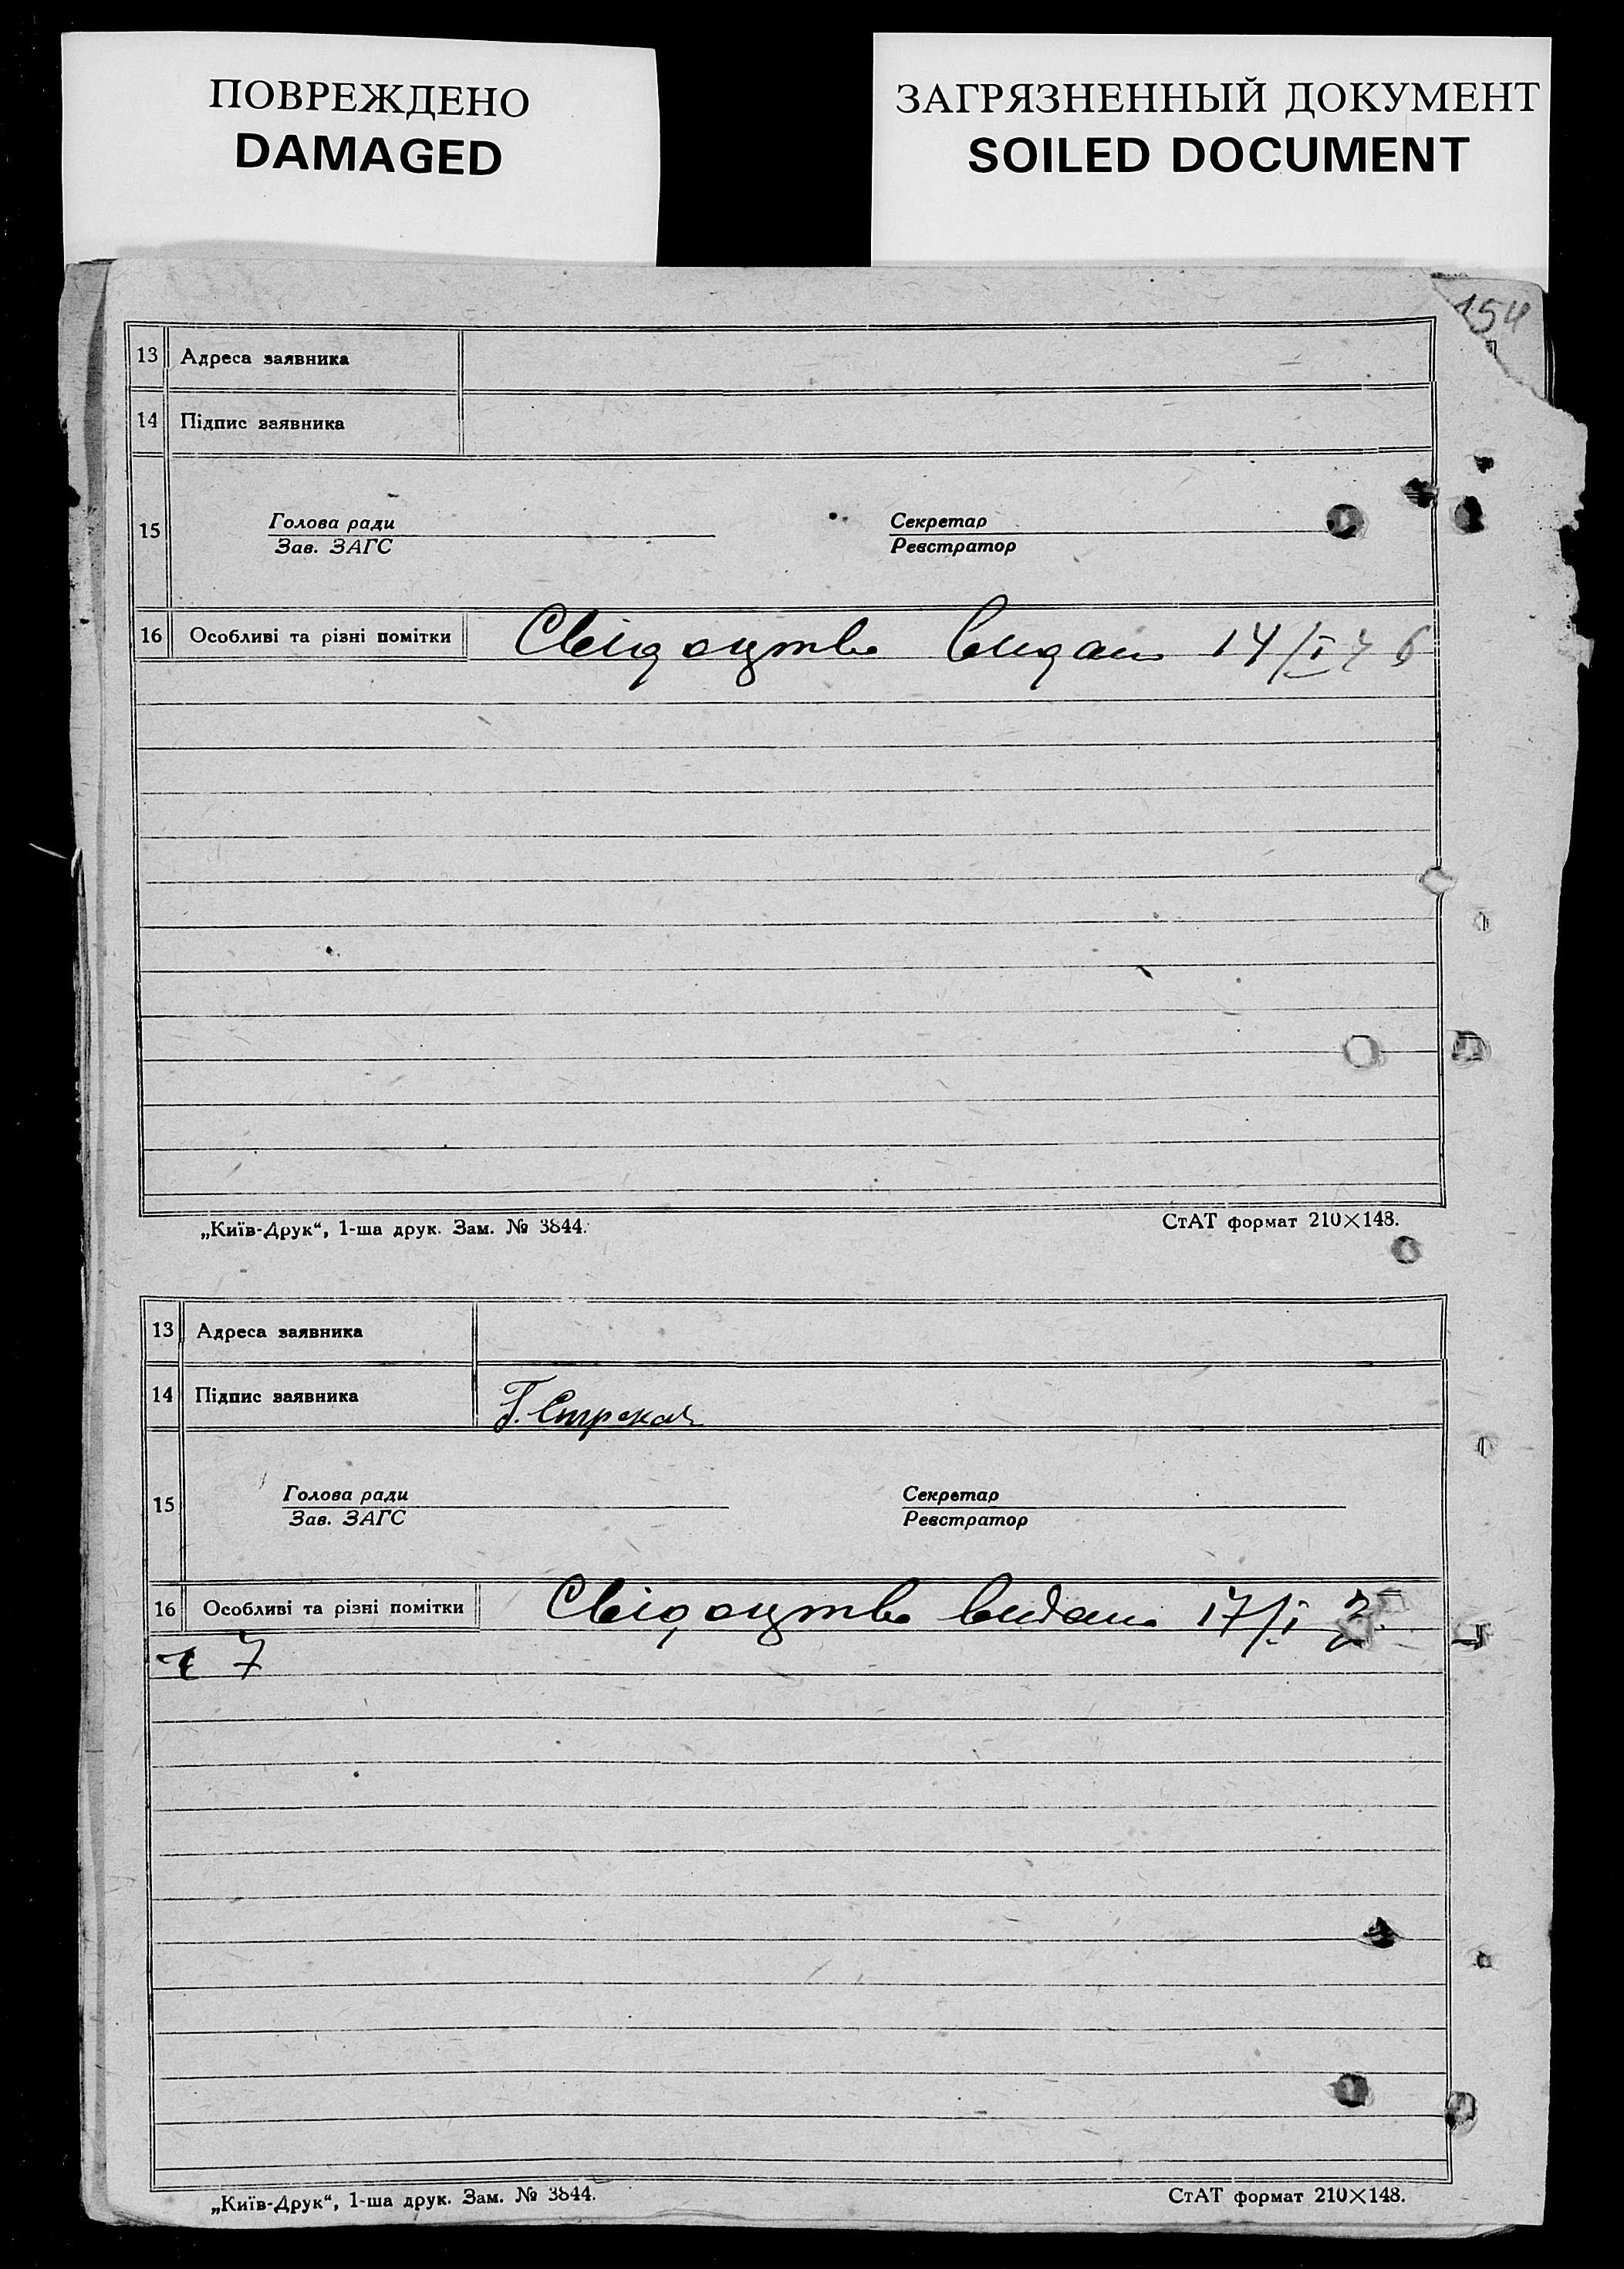 ПОВРЕЖДЕНО
DAMAGED
ЗАГРЯЗНЕННЫЙ ДОКУМЕНТ
SOILED DOCUMENT
154
13 Адреса заявника
14 Підпис заявника
15 Голова ради Секретар
Зав. ЗАГС Реєстратор
16 Особливі та різні помітки Свідоцтво видано 14/I
„Київ-Друк“, 1-ша друк. Зам. № 3844. СтАТ формат 210×148.
13 Адреса заявника
14 Підпис заявника Г.
15 Голова ради Секретар
Зав. ЗАГС Реєстратор
16 Особливі та різні помітки Свідоцтво видано 17/I
„Київ-Друк“, 1-ша друк. Зам. № 3844. СтАТ формат 210×148.